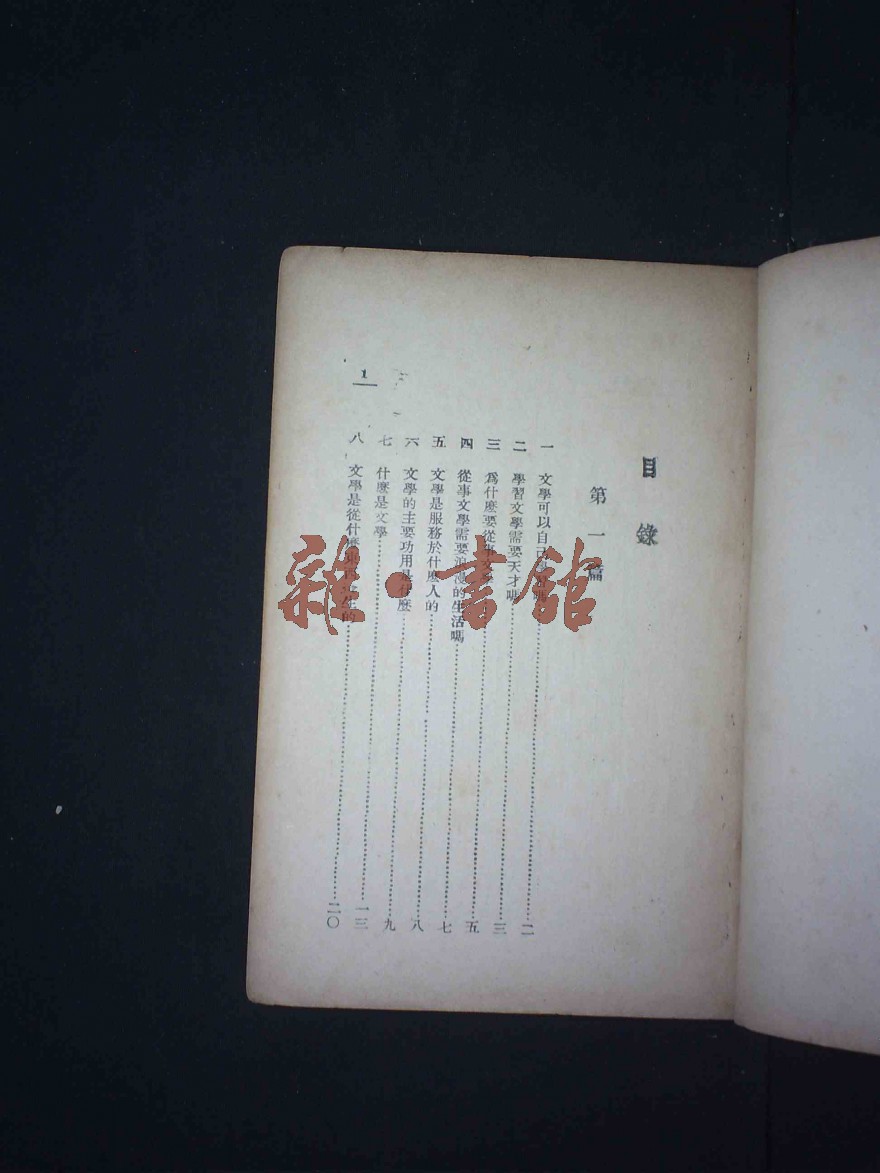 目錄
第一篇
一 文學可以自己學習嗎……二
二 學習文學需要天才嗎……三
三 爲什麽要從事文學……五
四 從事文學需要浪漫的生活嗎……七
五 文學是服務於什麽人的……八
六 文學的主要功用是什麽……九
七 什麽是文學……一三
八 文學是從什麽生的……二〇
1
雜·書館